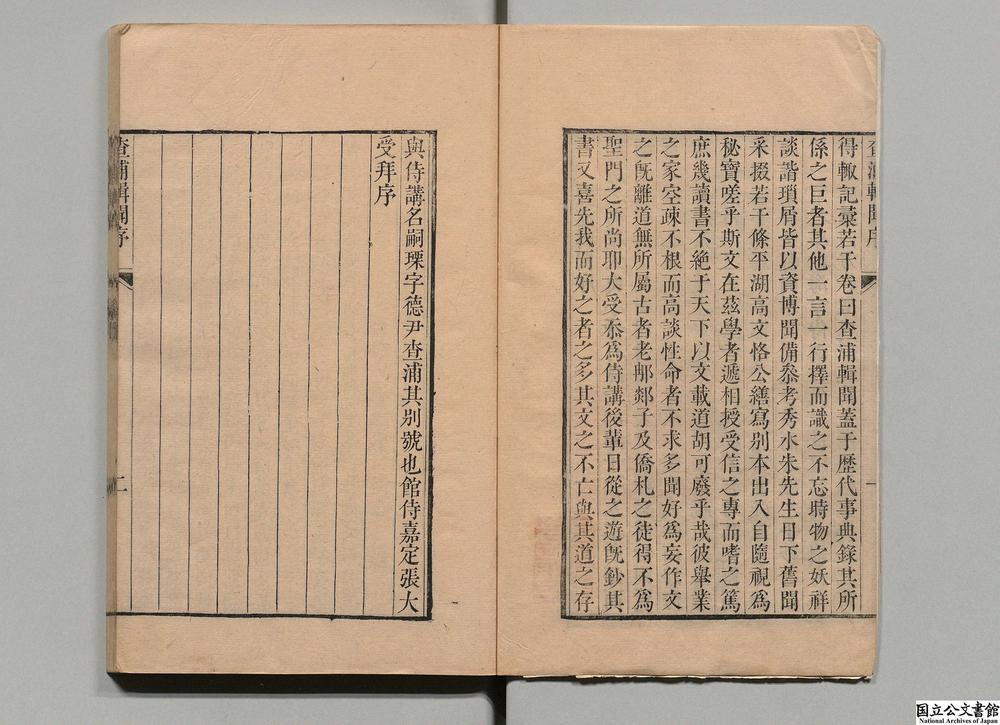 查浦輯聞序
得輙記彚若干卷曰查浦輯聞蓋于歷代事典錄其所
係之巨者其他一言一行擇而識之不忘時物之妖祥
談諧瑣屑皆以資博聞備叅考秀水朱先生日下舊聞
采掇若干條平湖高文恪公繕寫別本出入自隨視為
秘寶嗟乎斯文在茲學者遞相授受信之專而嗜之篤
庶幾讀書不絕于天下以文載道胡可廢乎哉彼舉業
之家空疎不根而高談性命者不求多聞好為妄作文
之旣離道無所屬古者老耼郯子及僑札之徒得不為
聖門之所尚耶大受忝為侍講後輩日從之遊旣鈔其
書又喜先我而好之者之多其文之不亡與其道之存
與侍講名嗣瑮字德尹查浦其別號也館侍嘉定張大
受拜序
查浦輯聞序
二
国立公文書館
National Archives of Japan